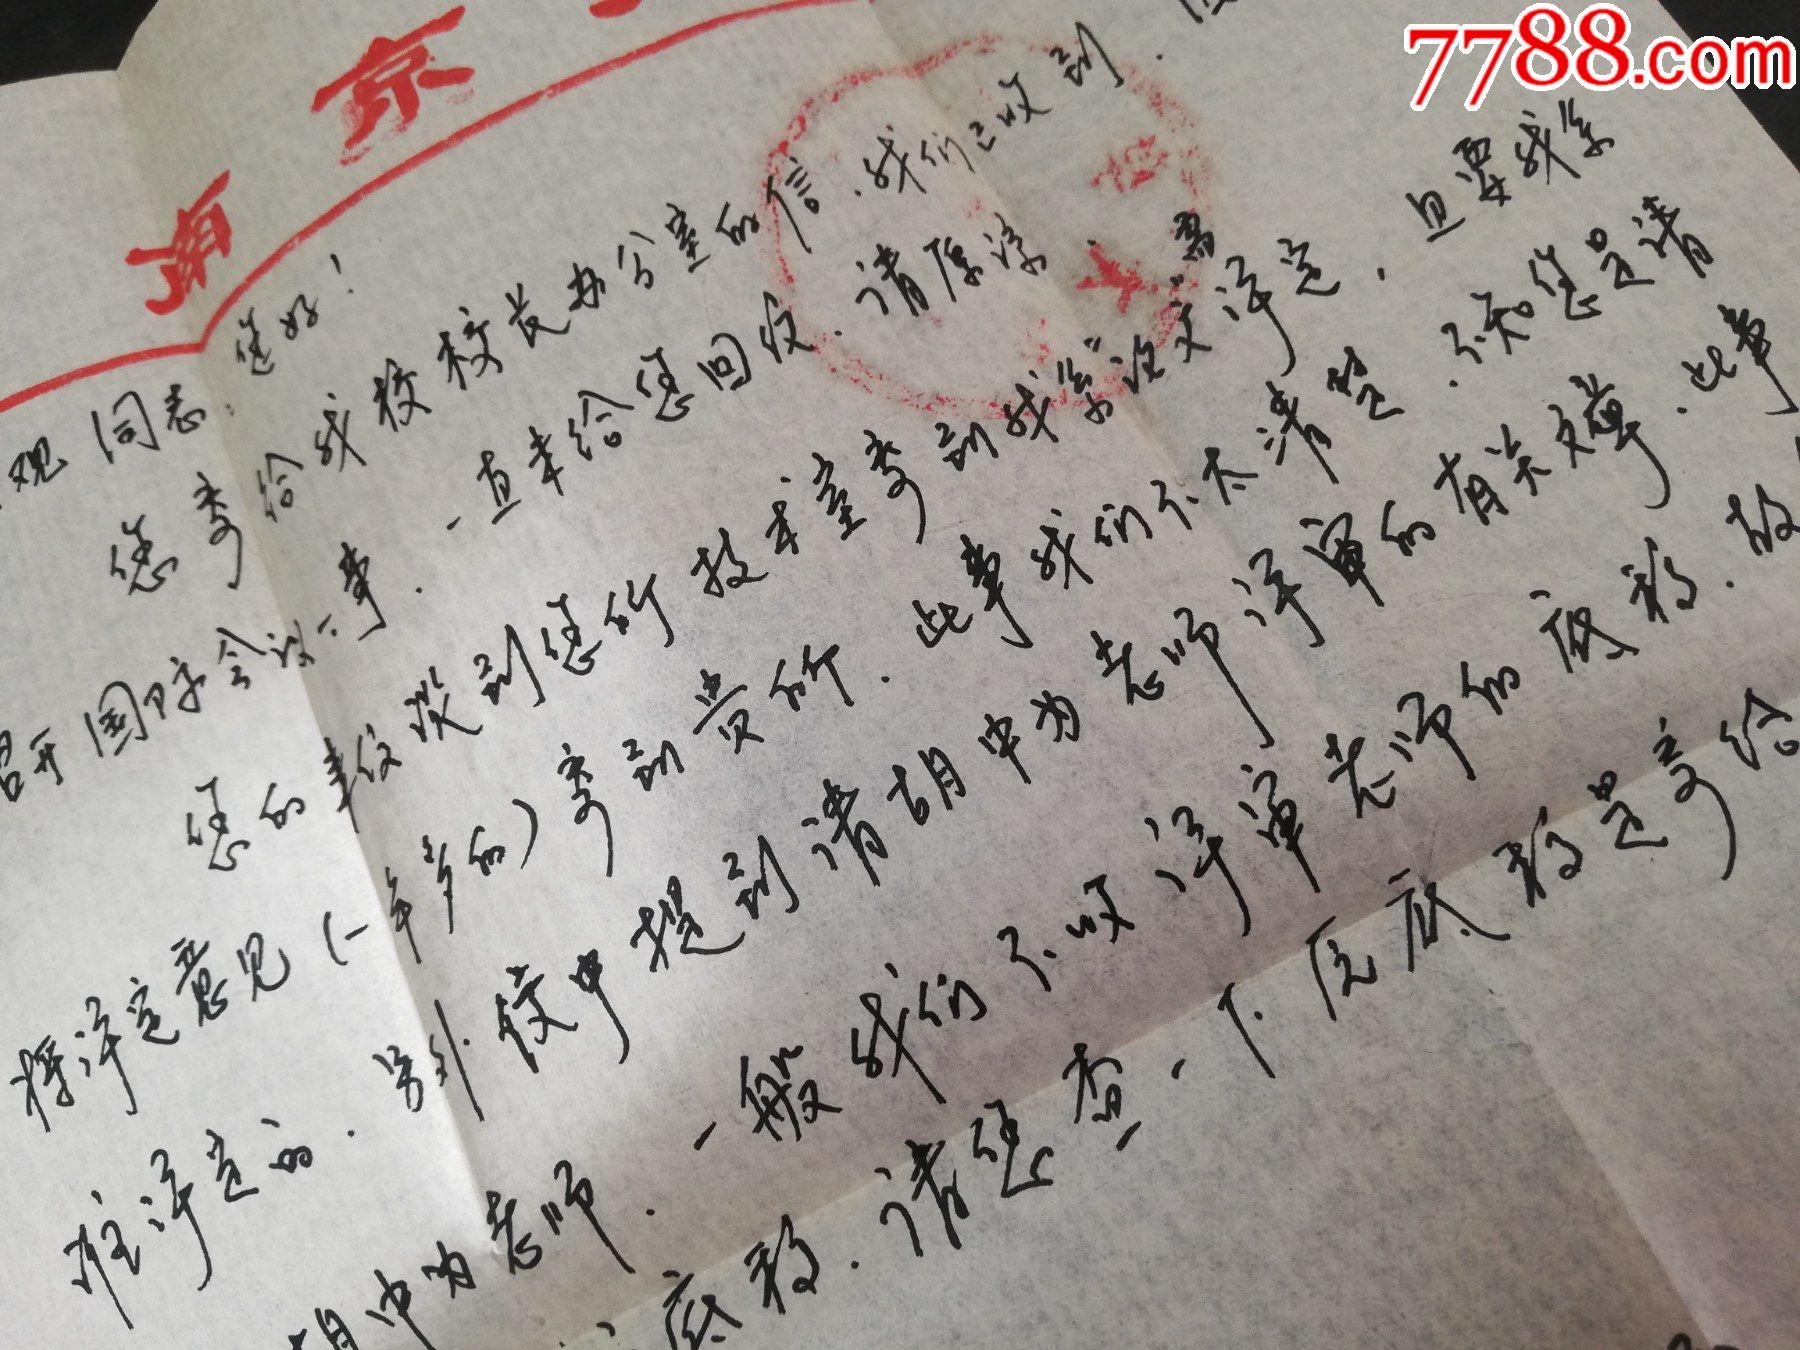 7788.com
南京
观同志:您好!
您寄给我校校长办公室的信.我们已收到.
召开国际会议一事.一直未给您回复.请原谅
您的来信谈到您所技术室寄到我系论文需评定,且要我系
将评定意见(一年多的)寄到贵所.此事我们不太清楚.不知您是请
谁评定的.另外信中提到请胡中为老师评审的有关文章.此事
胡中为老师.一般我们不收评审老师的底稿.故
底稿.请您查一下原底稿是寄给